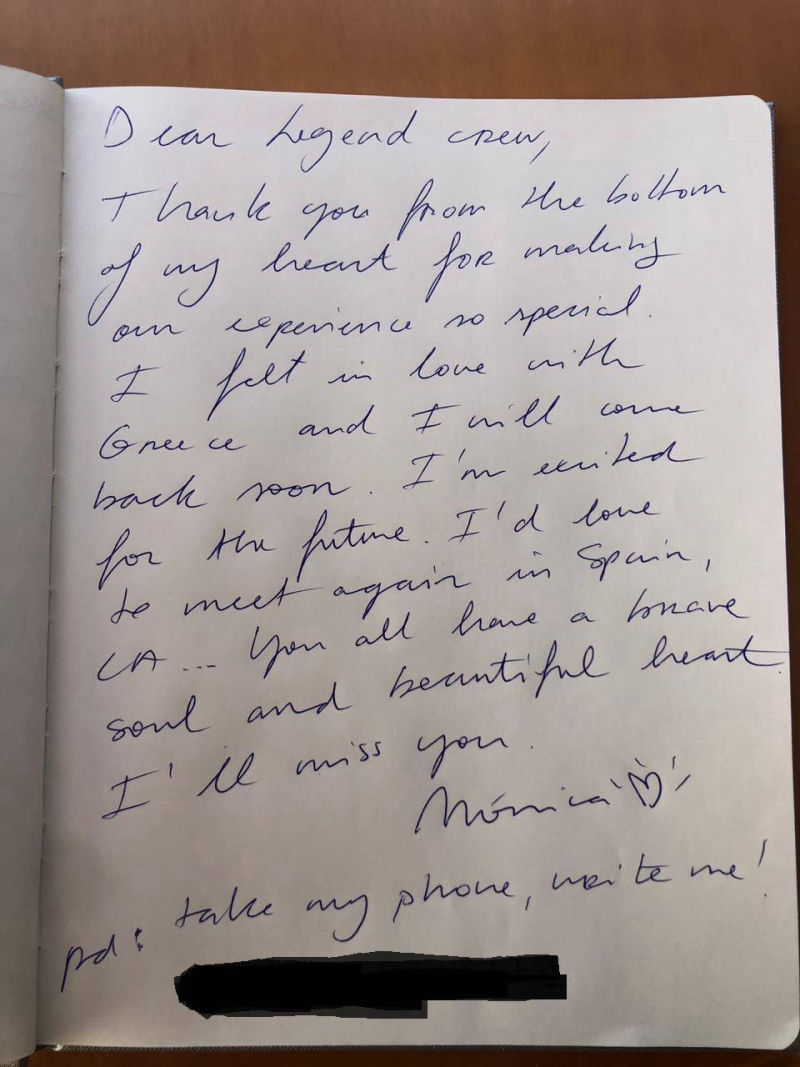 Dear Legend crew,
Thank you from the bottom
of my heart for making
our experience so special.
I felt in love with
Greece and I will come
back soon. I'm excited
for the future. I'd love
to meet again in Spain,
LA... You all have a brave
soul and beautiful heart.
I'll miss you.
Mónica
pd: take my phone, write me!